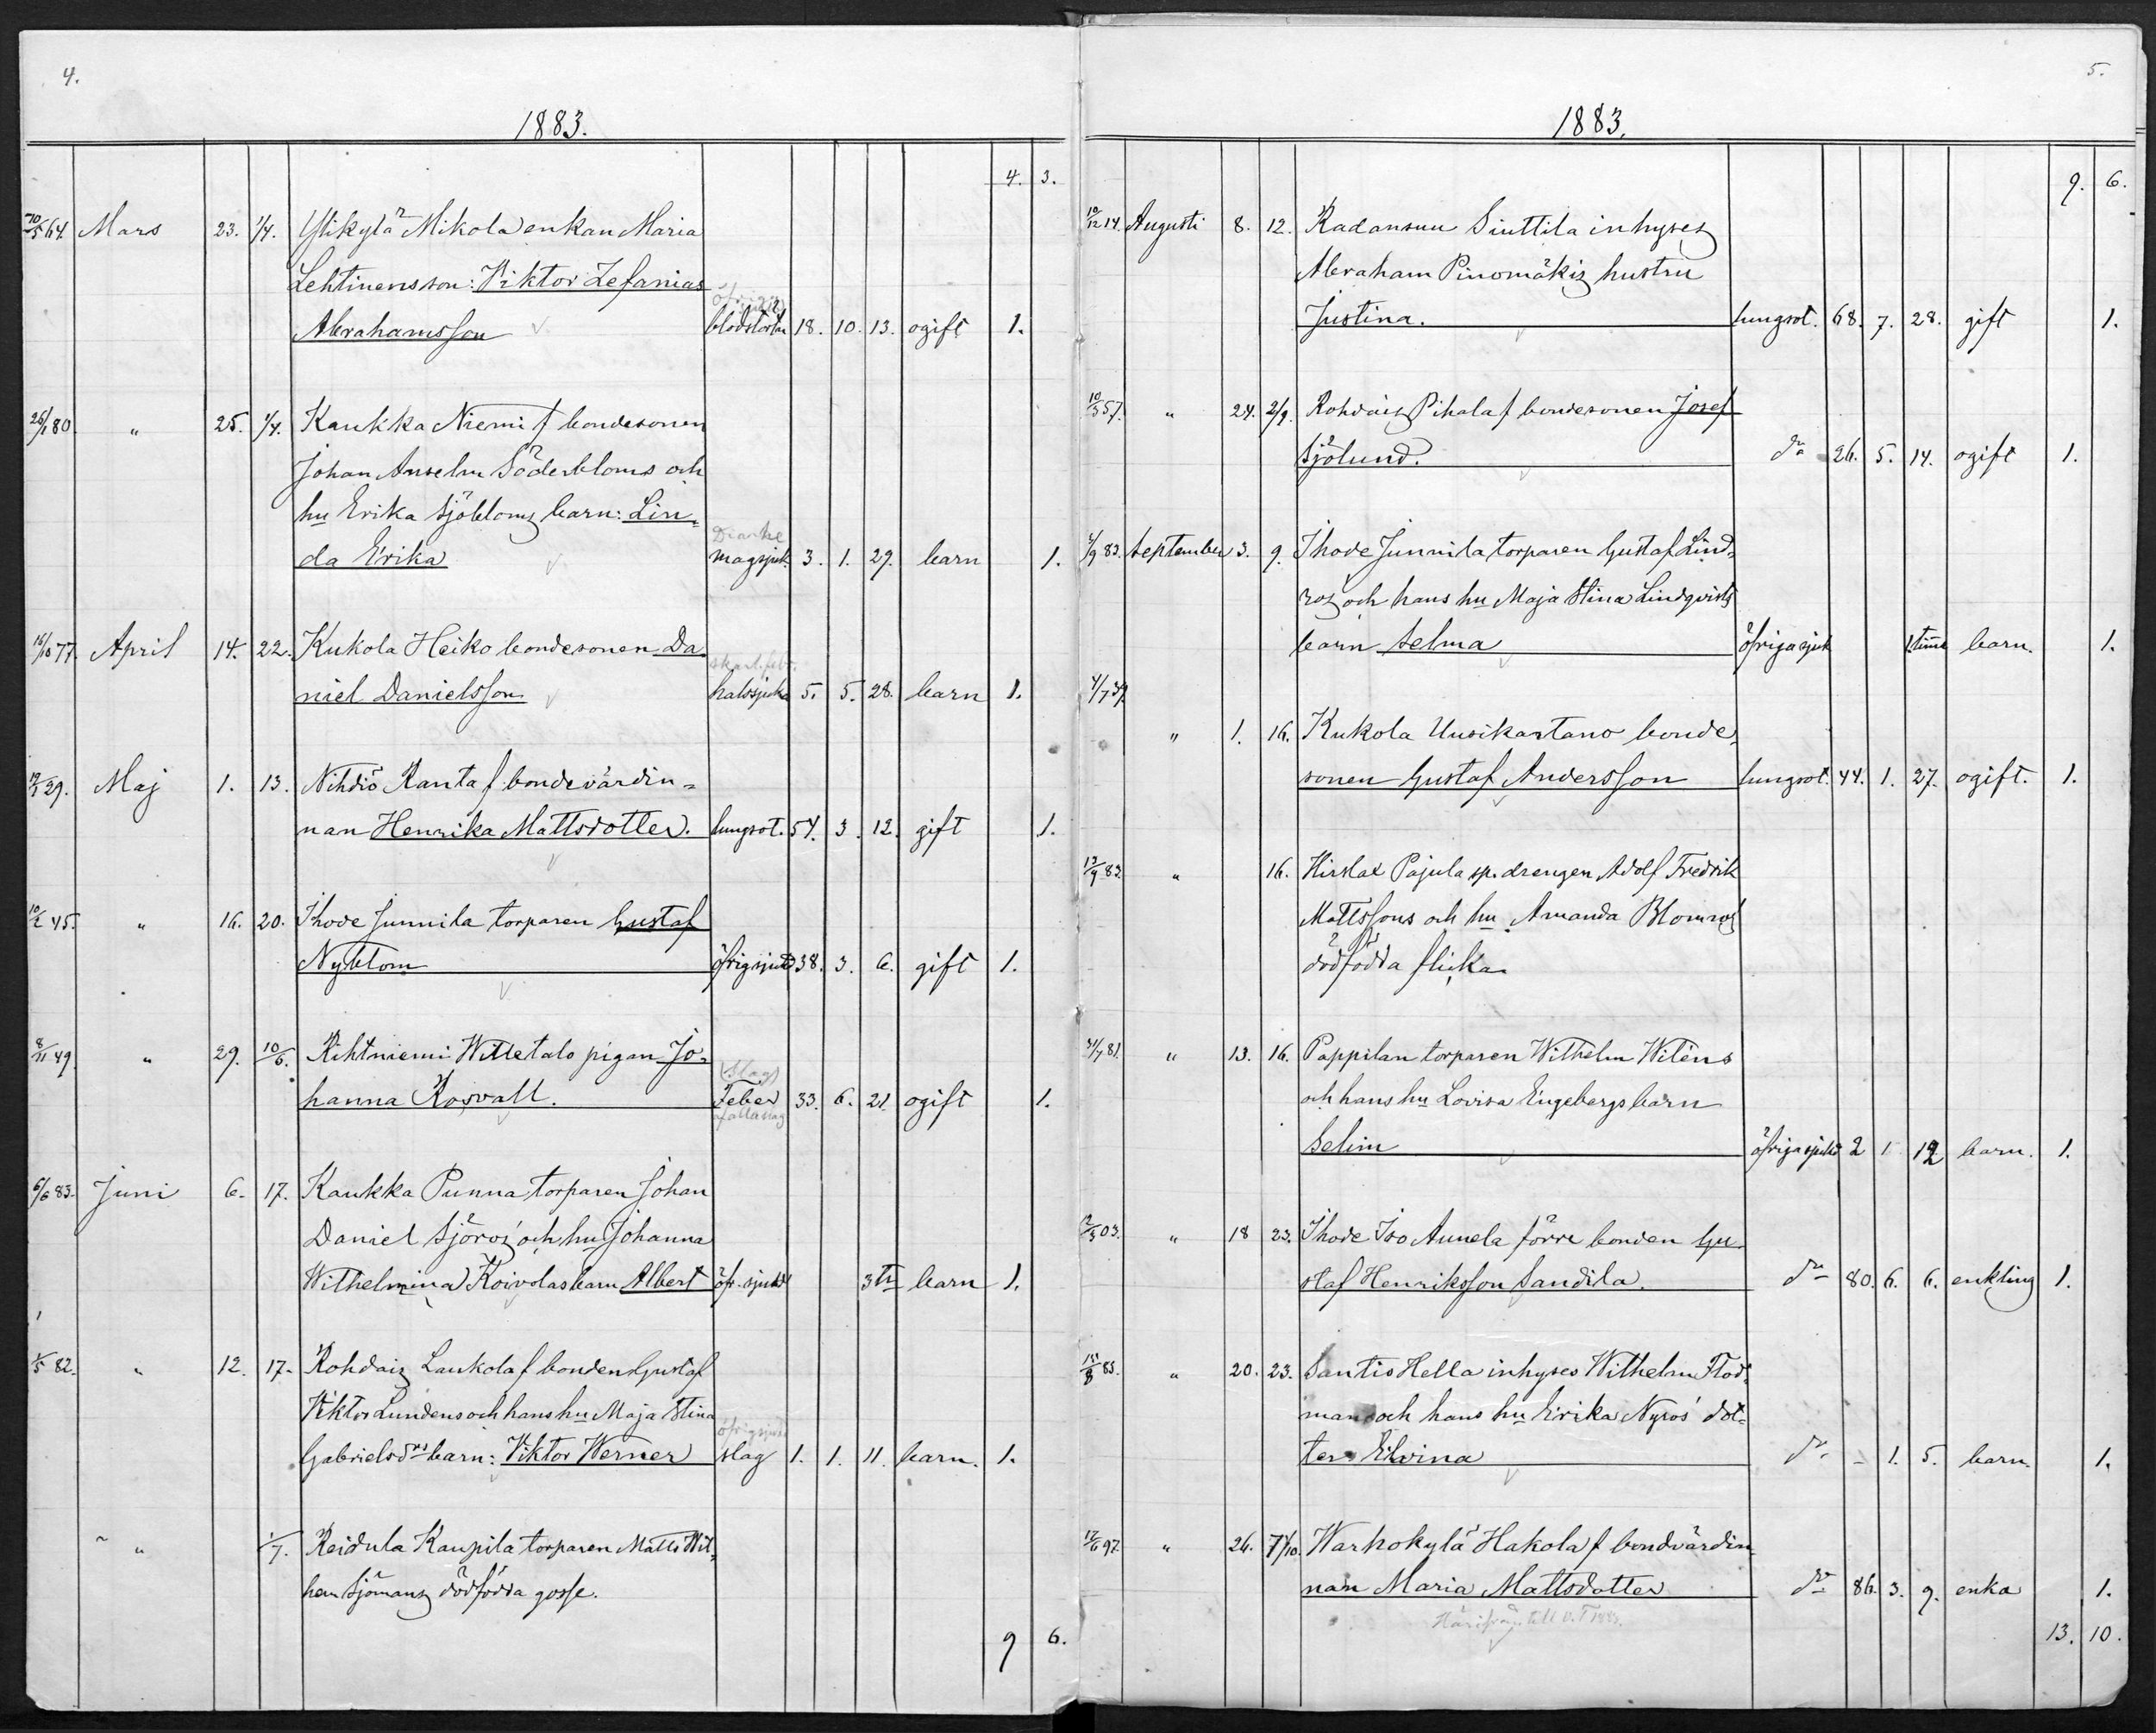 4.
1883.
4. 3.
10/5 64. Mars 23. 1/4. Ylikylä Mikola enkan Maria
Lehtinens son: Viktor Zefanias
Abrahamsson blodstörtn 18. 10. 13. ogift 1.
26/1 80. " 25. 1/4. Kaukka Niemi f bondesonen
Johan Anselm Söderbloms och
hu Erika Sjöbloms barn: Lin-
Diarhe
da Erika magsjuk. 3. 1. 29. barn 1.
16/10 77. April 14. 22. Kukola Heiko bondesonen Da-
skarl. febr.
niel Danielsson halssjuka 5. 5. 28. barn 1.
19/1 29. Maj 1. 13. Nihdiö Ranta f bondevärdin-
nan Henrika Mattsdotter. lungsot. 54. 3. 12. gift 1.
10/2 45. " 16. 20. Ihode Junnila torparen Gustaf
Nyblom öfrig sjukd 38. 3. 6. gift 1.
8/11 49. " 29. 10/6. Rihtniemi Willetalo pigan Jo-
(slag)
hanna Rosvall. Feber 33. 6. 21. ogift 1.
af alla slag
6/6 83. Juni 6. 17. Kaukka Punna torparen Johan
Daniel Sjöros och hu Johanna
Wilhelmina Koivolas barn Albert öfr. sjukd 3 tr barn 1.
1/5 82. " 12. 17. Rohdais Laukola f bonden Gustaf
Viktor Lundens och hans hu Maja Stina
öfrig sjukd
Gabrielsdrs barn: Viktor Werner slag 1. 1. 11. barn. 1.
" 1/7. Reidula Kaupila torparen Matts Wil-
hem Sjömans dödfödda gosse.
9 6.
5.
1883.
9. 6.
10/12 14. Augusti 8. 12. Radansuu Siuttila inhyses
Abraham Pinomäkis hustru
Justina. lungsot. 68. 7. 28. gift 1.
10/3 57. " 24. 2/9. Rohdais Pihala f bondesonen Josef
Sjölund. do 26. 5. 14. ogift 1.
3/9 83. September 3. 9. Ihode Junnila torparen Gustaf Lind-
ros och hans hu Maja Stina Lindqvists
barn Selma öfriga sjuk 1 timme barn. 1.
4/7 39.
" 1. 16. Kukola Uusikartano bonde-
sonen Gustaf Andersson lungsot. 44. 1. 27. ogift. 1.
13/9 83. " 16. Hirslax Pajula sp. drengen Adolf Fredrik
Mattssons och hu Amanda Blomros
dödfödda flicka
31/7 81. " 13. 16. Pappilan torparen Wilhelm Wiléns
och hans hu Lovisa Engebergs barn
Selim öfriga sjukd 2 1 12 barn. 1.
12/3 03. " 18 23. Ihode Iso Annela förre bonden Gu-
staf Henriksson Sandila. do 80. 6. 6. enkling 1.
15/8 83. " 20. 23. Santio Hella inhyses Wilhelm Flod-
mans och hans hu Erika Nyros' dot-
ter Elvina do - 1. 5. barn. 1.
17/6 97. " 26. 7/10. Warhokylä Hakola f bondvärdin-
nan Maria Mattsdotter do 86. 3. 9. enka 1.
Härifrån till V.T 1883.
13. 10.